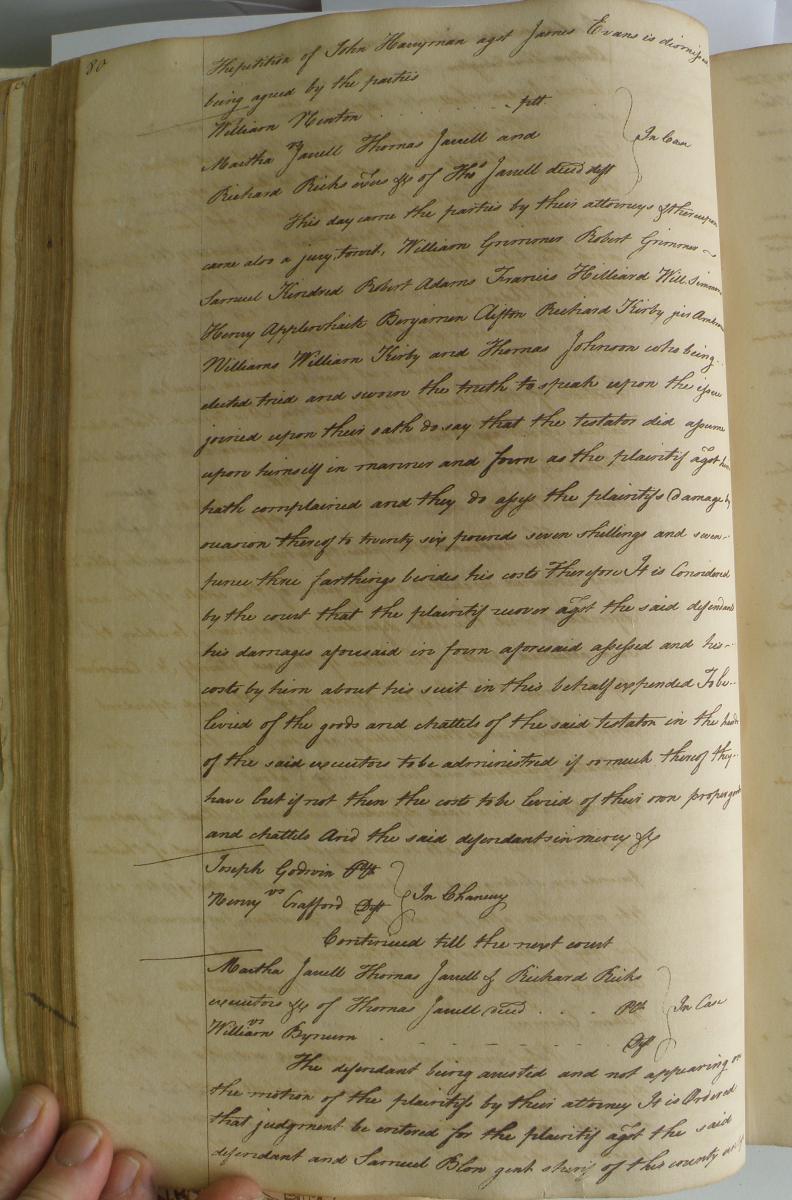 80
The petition of John Harryman agst James Evans is dismiss
being agreed by the parties
William Menton . . . . . . . . . . pltt
vs
Martha Jarrell Thomas Jarrell and
Richard Ricks exors &c of Thos Jarrell decd deft
In Case
This day came the parties by their attorneys & thereupon
came also a jury, towit, William Grimmer Robert Grimmer
Samuel Kindred Robert Adams Francis Hilliard Will
Henry Applewhaite Benjamin Clifton Richard Kirby jur
Williams William Kirby and Thomas Johnson who being
elected tried and sworn the truth to speak upon the issue
joined upon their oath do say that the testator did assume
upon himself in manner and form as the plaintif agst him
hath complained and they do assess the plaintifs damage by
occasion thereof to twenty six pounds seven shillings and seven
pence three farthings besides his costs Therefore It is Considered
by the court that the plaintif recover agst the said defendants
his damages aforesaid in form aforesaid assessed and his
costs by him about his suit in this behalf expended To be
levied of the goods and chattels of the said testator in the hands
of the said executors to be administred if so much thereof they
have but if not then the costs to be levied of their own proper goods
and chattels And the said defendants in mercy &c
Joseph Godwin Plt
vs
Henry Crafford Dft
In Chancery
Continued till the next court
Martha Jarrell Thomas Jarrell & Richard Ricks
executors &c of Thomas Jarrell decd . . . . Plt
vs
William Bynum . . . . . . Dft
In Case
The defendant being arrested and not appearing on
the motion of the plaintifs by their attorney It is Ordered
that judgment be entered for the plaintif agst the said
defendant and Samuel Blow gent sherif of this county